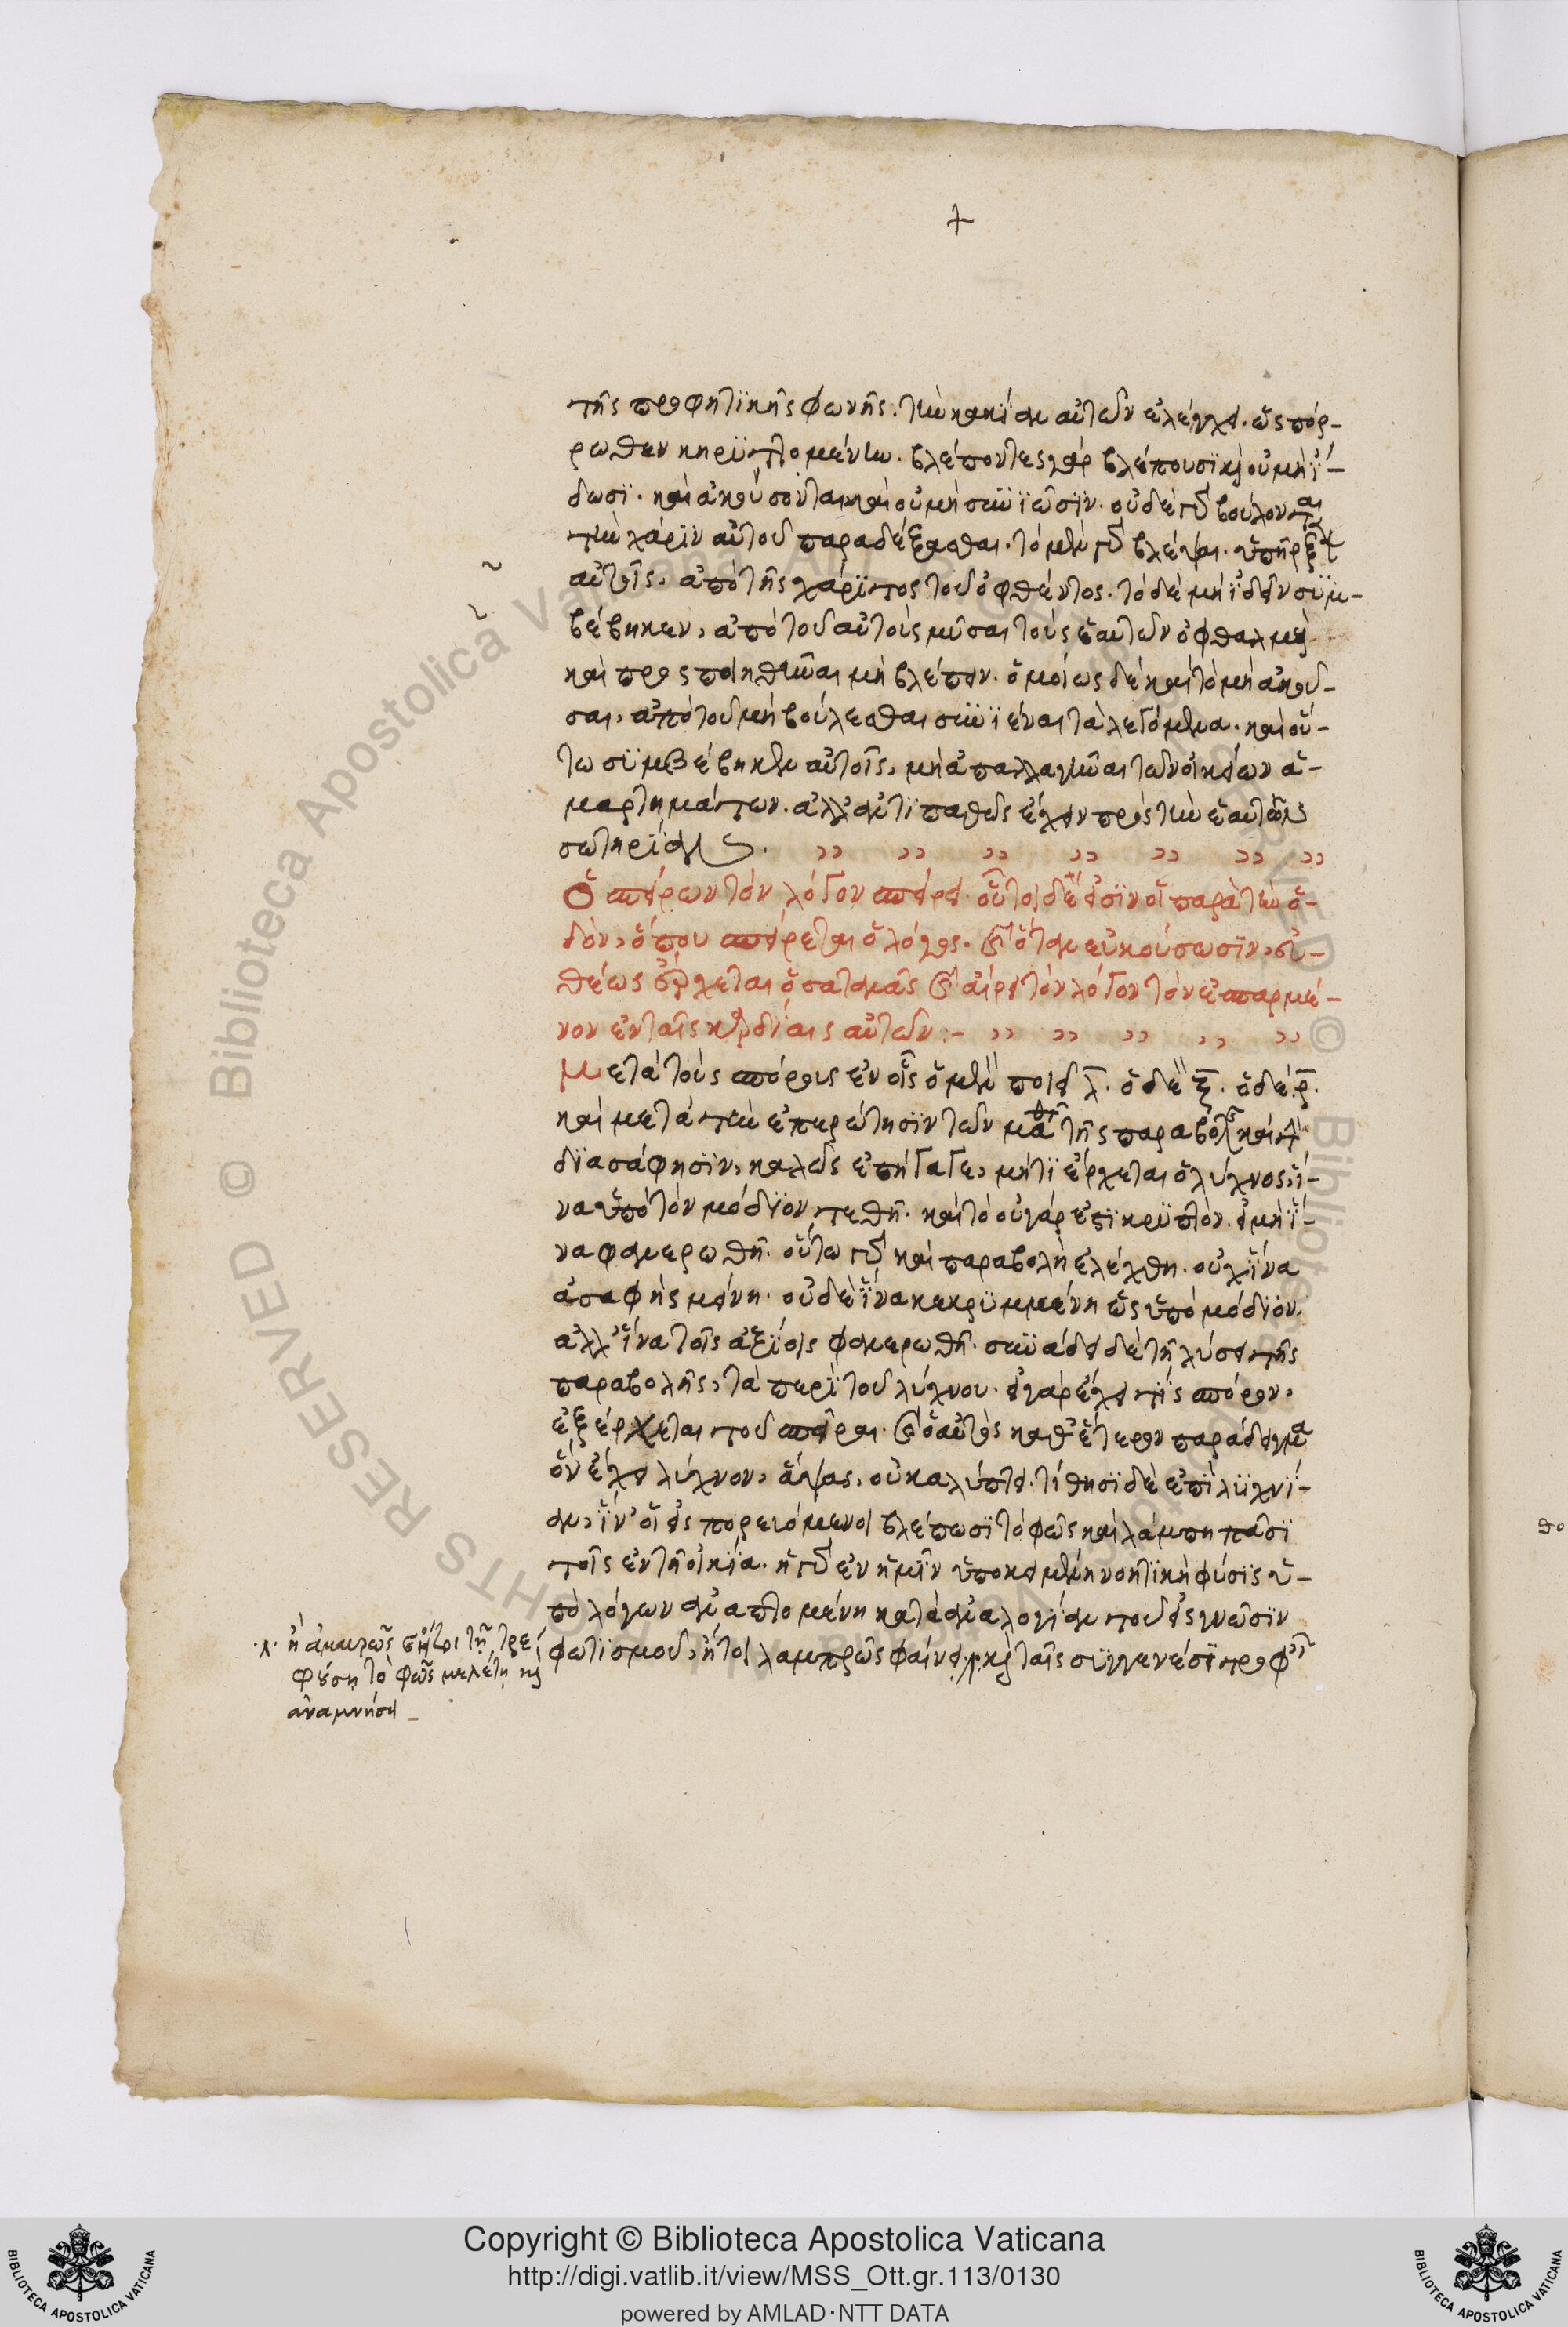 της προφητϊκῆς φωνῆς. τὴν κακίαν αὐτῶν ἐλέγχει. ὡς πόρ-
ρωθεν κηρϋττομένην. βλέποντες γὰρ βλέπουσϊ καὶ οὐ μὴ ἴ-
δωσϊ. καὶ ἀκούσονται καὶ οὐ μὴ συνϊῶσϊν. οὐδὲ γὰρ βούλονται
τὴν χάρϊν αὐτοῦ παραδέξασθαι. τὸ μὲν γὰρ βλέψαι. ὑπῆρξεν
αὐτοῖς, ἀπὸ τῆς χάρϊτος τοῦ ὀφθέντος. τὸ δὲ μὴ ἰδεῖν συμ-
βέβηκεν, ἀπὸ τοῦ αὐτοὺς μῦσαι τοὺς ἑαυτῶν ὀφθαλμοὺς
καὶ προσποιηθῆναι μὴ βλέπειν. ὁμοίως δὲ καὶ τὸ μὴ ἀκοῦ-
σαι, ἀπὸ τοῦ μὴ βούλεσθαι συνϊέναι τὰ λεγόμενα. καὶ οὕ-
τω συμβέβηκεν αὐτοῖς, μὴ ἀπαλλαγῆναι τῶν οἰκείων ἁ-
μαρτημάτων. ἀλλ' ἀντιπαθῶς ἔχειν πρὸς τὴν ἑαυτῶν
σωτηρίαν.
Ὁ σπείρων τὸν λόγον σπείρει. οὗτοι δέ εἰσϊν οἱ παρὰ τὴν ὁ-
δὸν, ὅπου σπείρεται ὁ λόγος. καὶ ὅταν ἀκούσωσϊν, εὐ-
θέως ἔρχεται ὁ σατανᾶς καὶ αἴρει τὸν λόγον τὸν ἐσπαρμέ-
νον ἐν ταῖς καρδίαις αὐτῶν:-
Μετὰ τοὺς σπόρους ἐν οἷς ὁ μὲν ποιεῖ λ. ὁ δὲ ξ. ὁ δὲ ρ.
καὶ μετὰ τὴν ἐπερώτησϊν τῶν μαθ τῆς παραβολῆς καὶ τὴν
δϊασάφησϊν, καλῶς ἐπήγαγε, μήτι ἔρχεται ὁ λύχνος, ἵ-
να ὑπὸ τὸν μόδϊον τεθῇ. καὶ τὸ οὐ γάρ ἐστϊ κρϋπτὸν. εἰ μὴ ἵ-
να φανερωθῇ. οὕτω γὰρ καὶ παραβολὴ ἐλέχθη. οὐχ ἵνα
ἀσαφὴς μείνῃ. οὐδὲ ἵνα κεκρϋμμένη ὡς ὑπὸ μόδϊον.
ἀλλ' ἵνα τοῖς ἀξίοις φανερωθῇ. συνάδει δὲ τῇ λύσει τῆς
παραβολῆς, τὰ περὶ τοῦ λύχνου. εἰ γὰρ ἔχει τϊς σπόρον,
ἐξέρχεται τοῦ σπεῖραι. καὶ ὁ αὐτὸς καθ' ἕτερον παράδειγμα
ὃν ἔχει λύχνον, ἅψας, οὐ καλύπτει. τίθησϊ δὲ ἐπὶ λϋχνί-
αν, ἵν' οἱ εἰσπορευόμενοι βλέπωσϊ τὸ φῶς καὶ λάμπῃ πᾶσϊ
τοῖς ἐν τῇ οἰκίᾳ. ἡ γὰρ ἐν ἡμῖν ὑποκειμένη νοητϊκὴ φύσϊς ὑ-
πὸ λόγων ἀναπτομένη κατὰ ἀναλογίαν τοῦ εἰς γνῶσϊν
φωτϊσμοῦ, ἤτοι λαμπρῶς φαίνει. καὶ ταῖς συγγενέσϊ
φέσῃ τὸ φῶς μελέτῃ καὶ
ἀναμνήσει
Copyright © Biblioteca Apostolica Vaticana
http://digi.vatlib.it/view/MSS_Ott.gr.113/0130
powered by AMLAD·NTT DATA